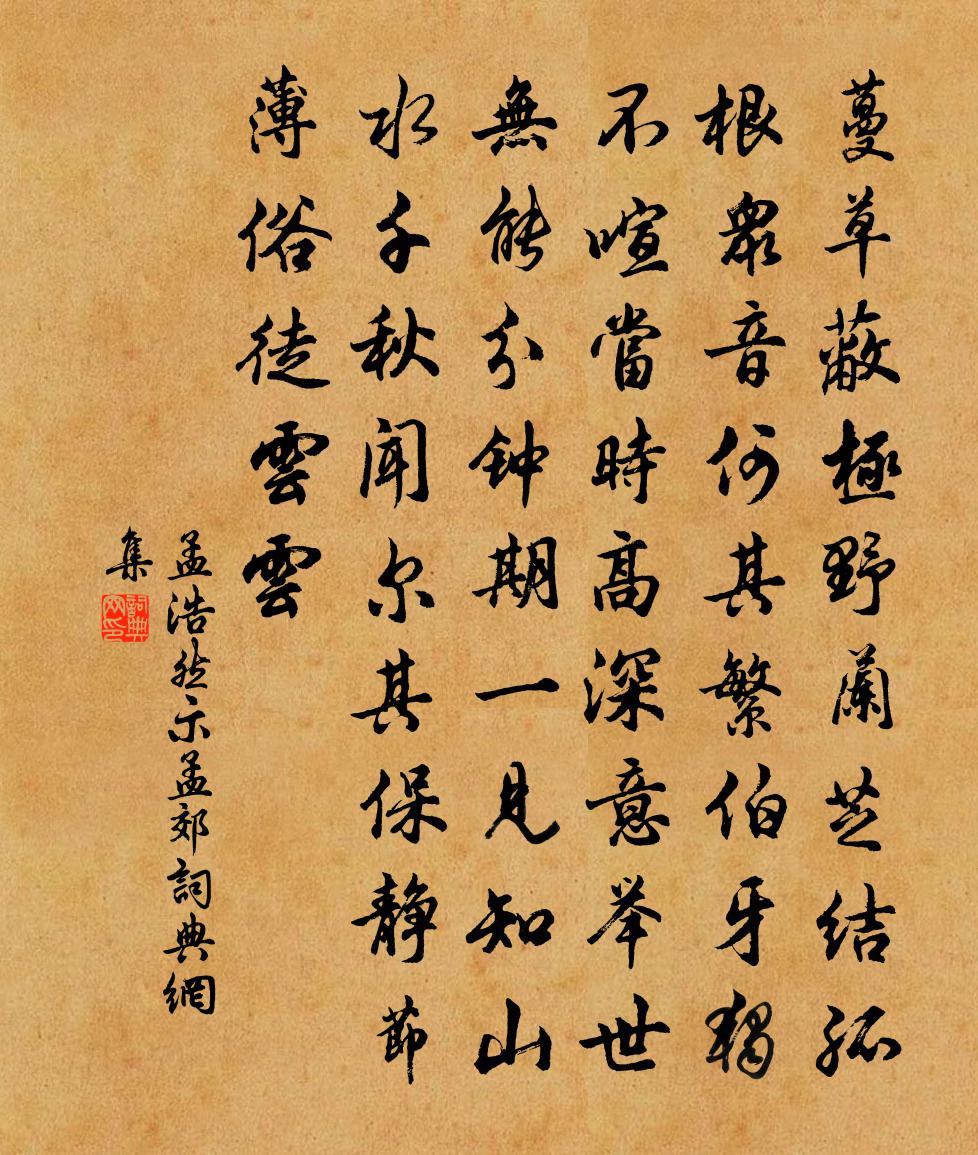 蔓草蔽極野蘭芝结孤
根眾音何其繁伯牙獨
不喧當時高深意举世
無能分钟期一見知山
水千秋闻尔其保静節
薄俗徒雲雲
孟浩然示孟郊詞典網
集
詞典网印